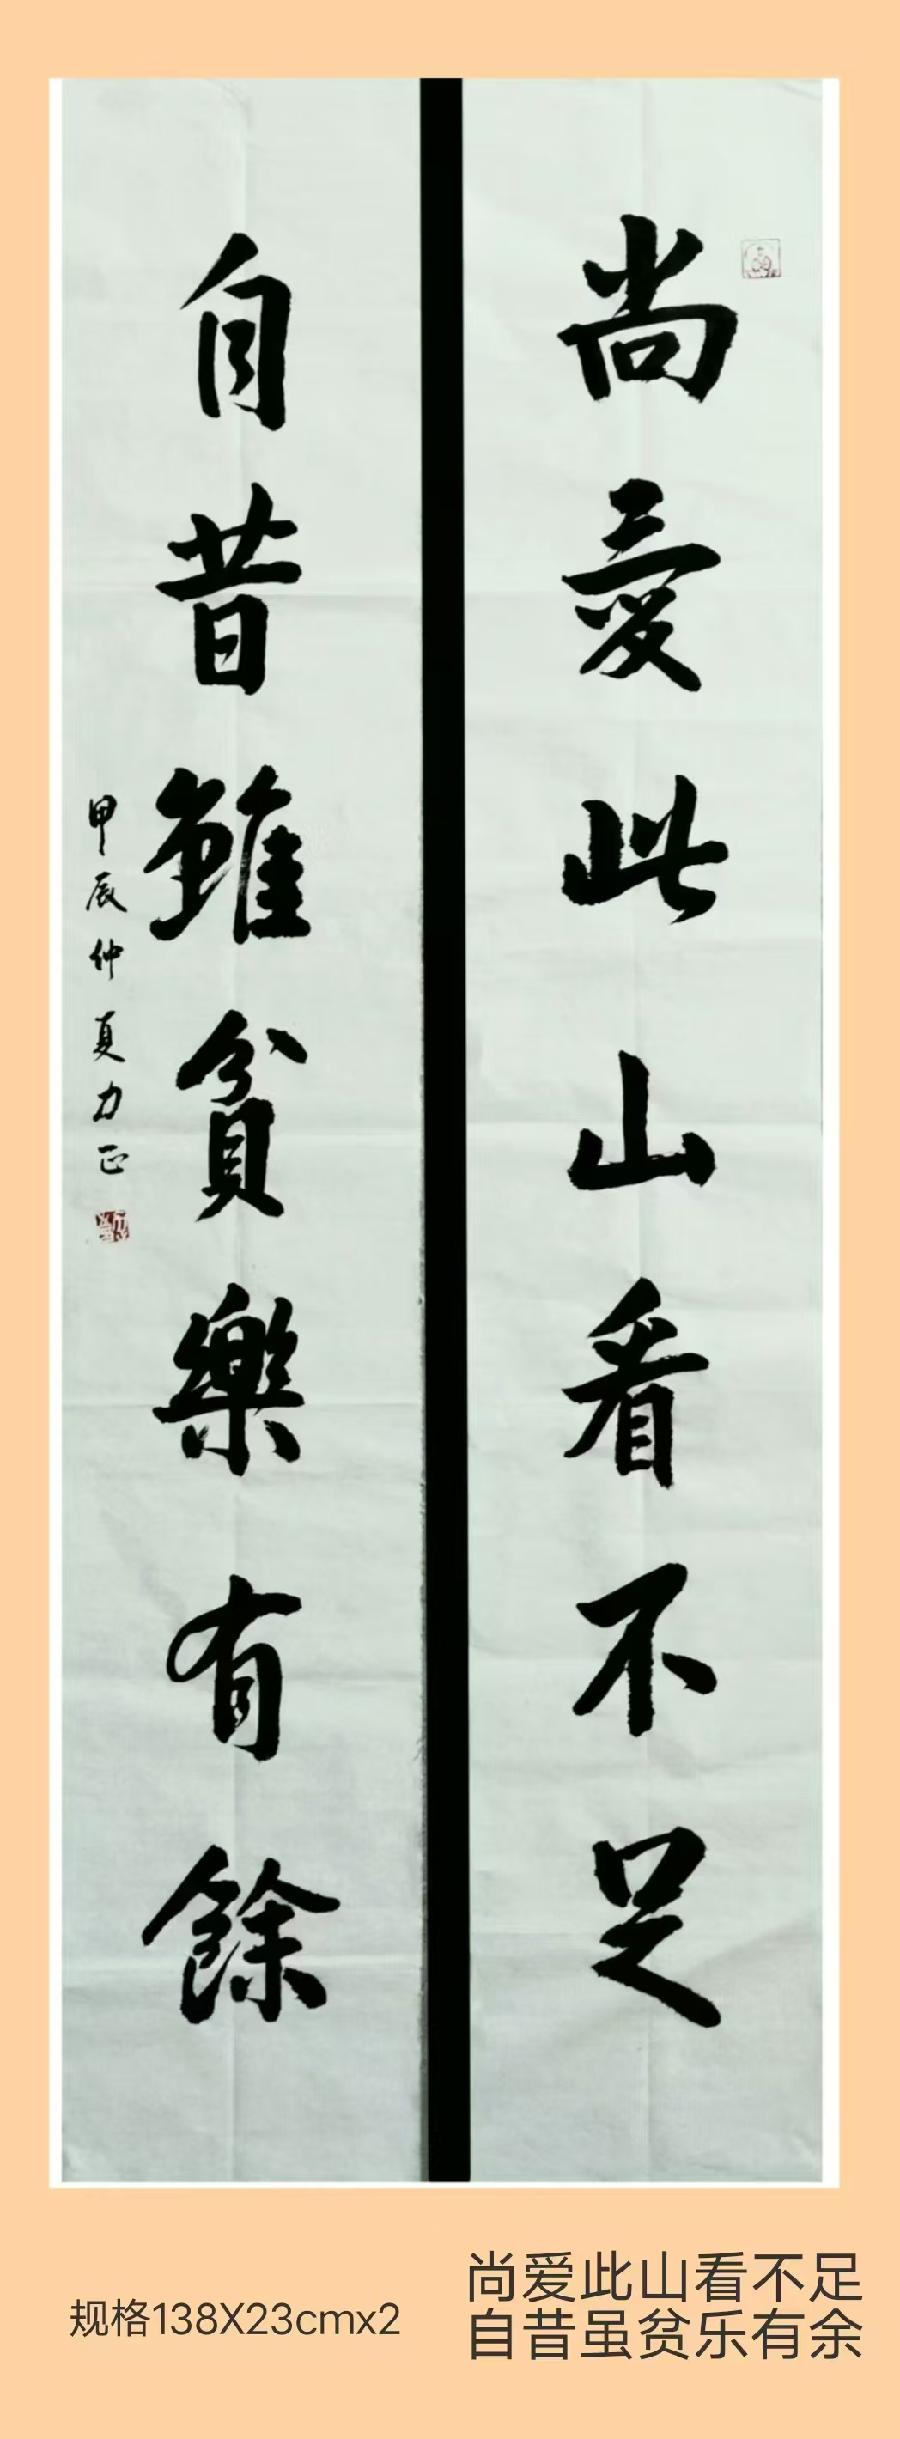 尚愛此山看不足
自昔雖貧樂有餘
甲辰仲夏力正
规格138X23cmx2
尚爱此山看不足
自昔虽贫乐有余